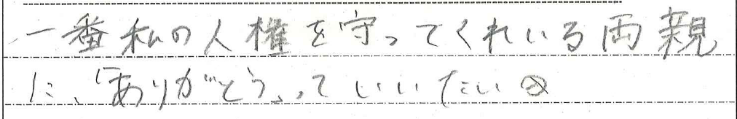 一番私の人権を守ってくれいる両親
に、「ありがとう」っていいたい